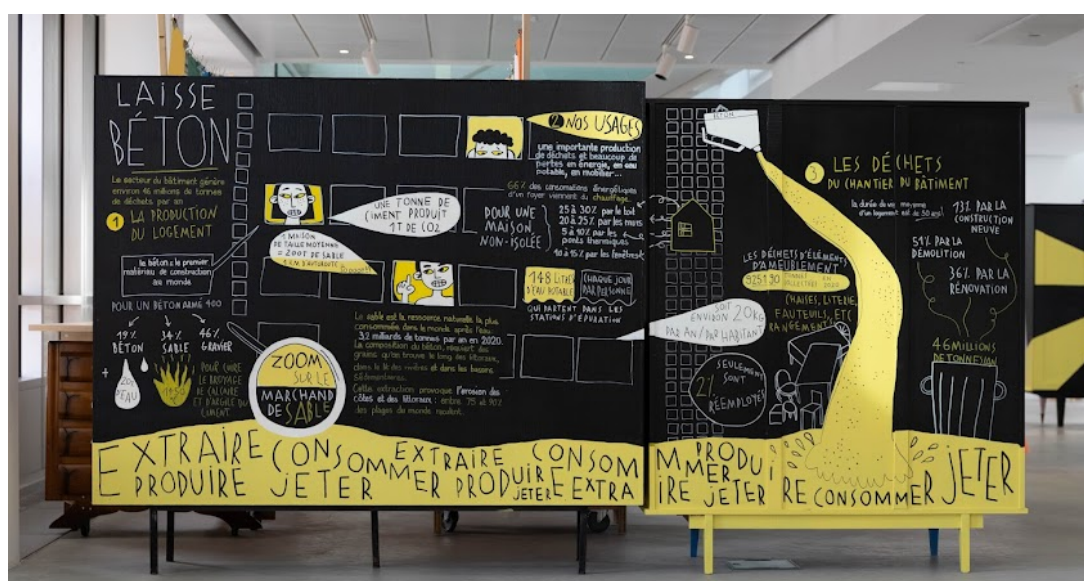 LAISSE
BÉTON
Le secteur du bâtiment génère
environ 46 millions de tonnes
de déchets par an
1 LA PRODUCTION
DU LOGEMENT
le béton: le premier
matériau de construction
au monde
POUR UN BÉTON ARMÉ 400
19% 34% 46%
BÉTON SABLE GRAVIER
+
EAU
POUR CUIRE
LE BROYAGE
DE CALCAIRE
ET D'ARGILE DU
CIMENT
UNE TONNE DE
CIMENT PRODUIT
1T DE CO2
1 MAISON
DE TAILLE MOYENNE
= 200T DE SABLE
ZOOM
SUR LE
MARCHAND
DE SABLE
Le sable est la ressource naturelle la plus
consommée dans le monde après l'eau:
3,2 milliards de tonnes par an en 2020.
La composition du béton, requiert des
grains qu'on trouve le long des littoraux,
dans le lit des rivières et dans les bassins
sédimentaires.
Cette extraction provoque l'érosion des
côtes et des littoraux: entre 75 et 90%
des plages du monde reculent.
2 NOS USAGES
une importante production
de déchets et beaucoup de
pertes en énergie, en eau
potable, en mobilier...
66% des consommations énergétiques
d'un foyer viennent du chauffage.
POUR UNE
MAISON
NON-ISOLÉE
25 à 30% par le toit
20 à 25% par les murs
5 à 10% par les
ponts thermiques
10 à 15% par les fenêtres
148 LITRES
D'EAU POTABLE
CHAQUE JOUR
PAR PERSONNE
QUI PARTENT DANS LES
STATIONS D'ÉPURATION
BÉTON
3 LES DÉCHETS
DU CHANTIER DU BÂTIMENT
la durée de vie moyenne
d'un logement est de 50 ans!
13% PAR LA
CONSTRUCTION
NEUVE
51% PAR LA
DÉMOLITION
36% PAR LA
RÉNOVATION
46 MILLIONS
DE TONNES/AN
LES DÉCHETS D'ÉLÉMENTS
D'AMEUBLEMENT
TONNES EN
COLLECTÉES 2020
CHAISES, LITERIE,
FAUTEUILS, ETC
RANGEMENTS
SOIT
ENVIRON 20KG
PAR AN/PAR HABITANT
SEULEMENT
2% SONT
RÉEMPLOYÉS
EXTRAIRE CONSOMMER EXTRAIRE CONSOM
PRODUIRE JETER PRODUIRE JETER EXTRA
MMER PRODUI
IRE JETER RE CONSOMMER JETER